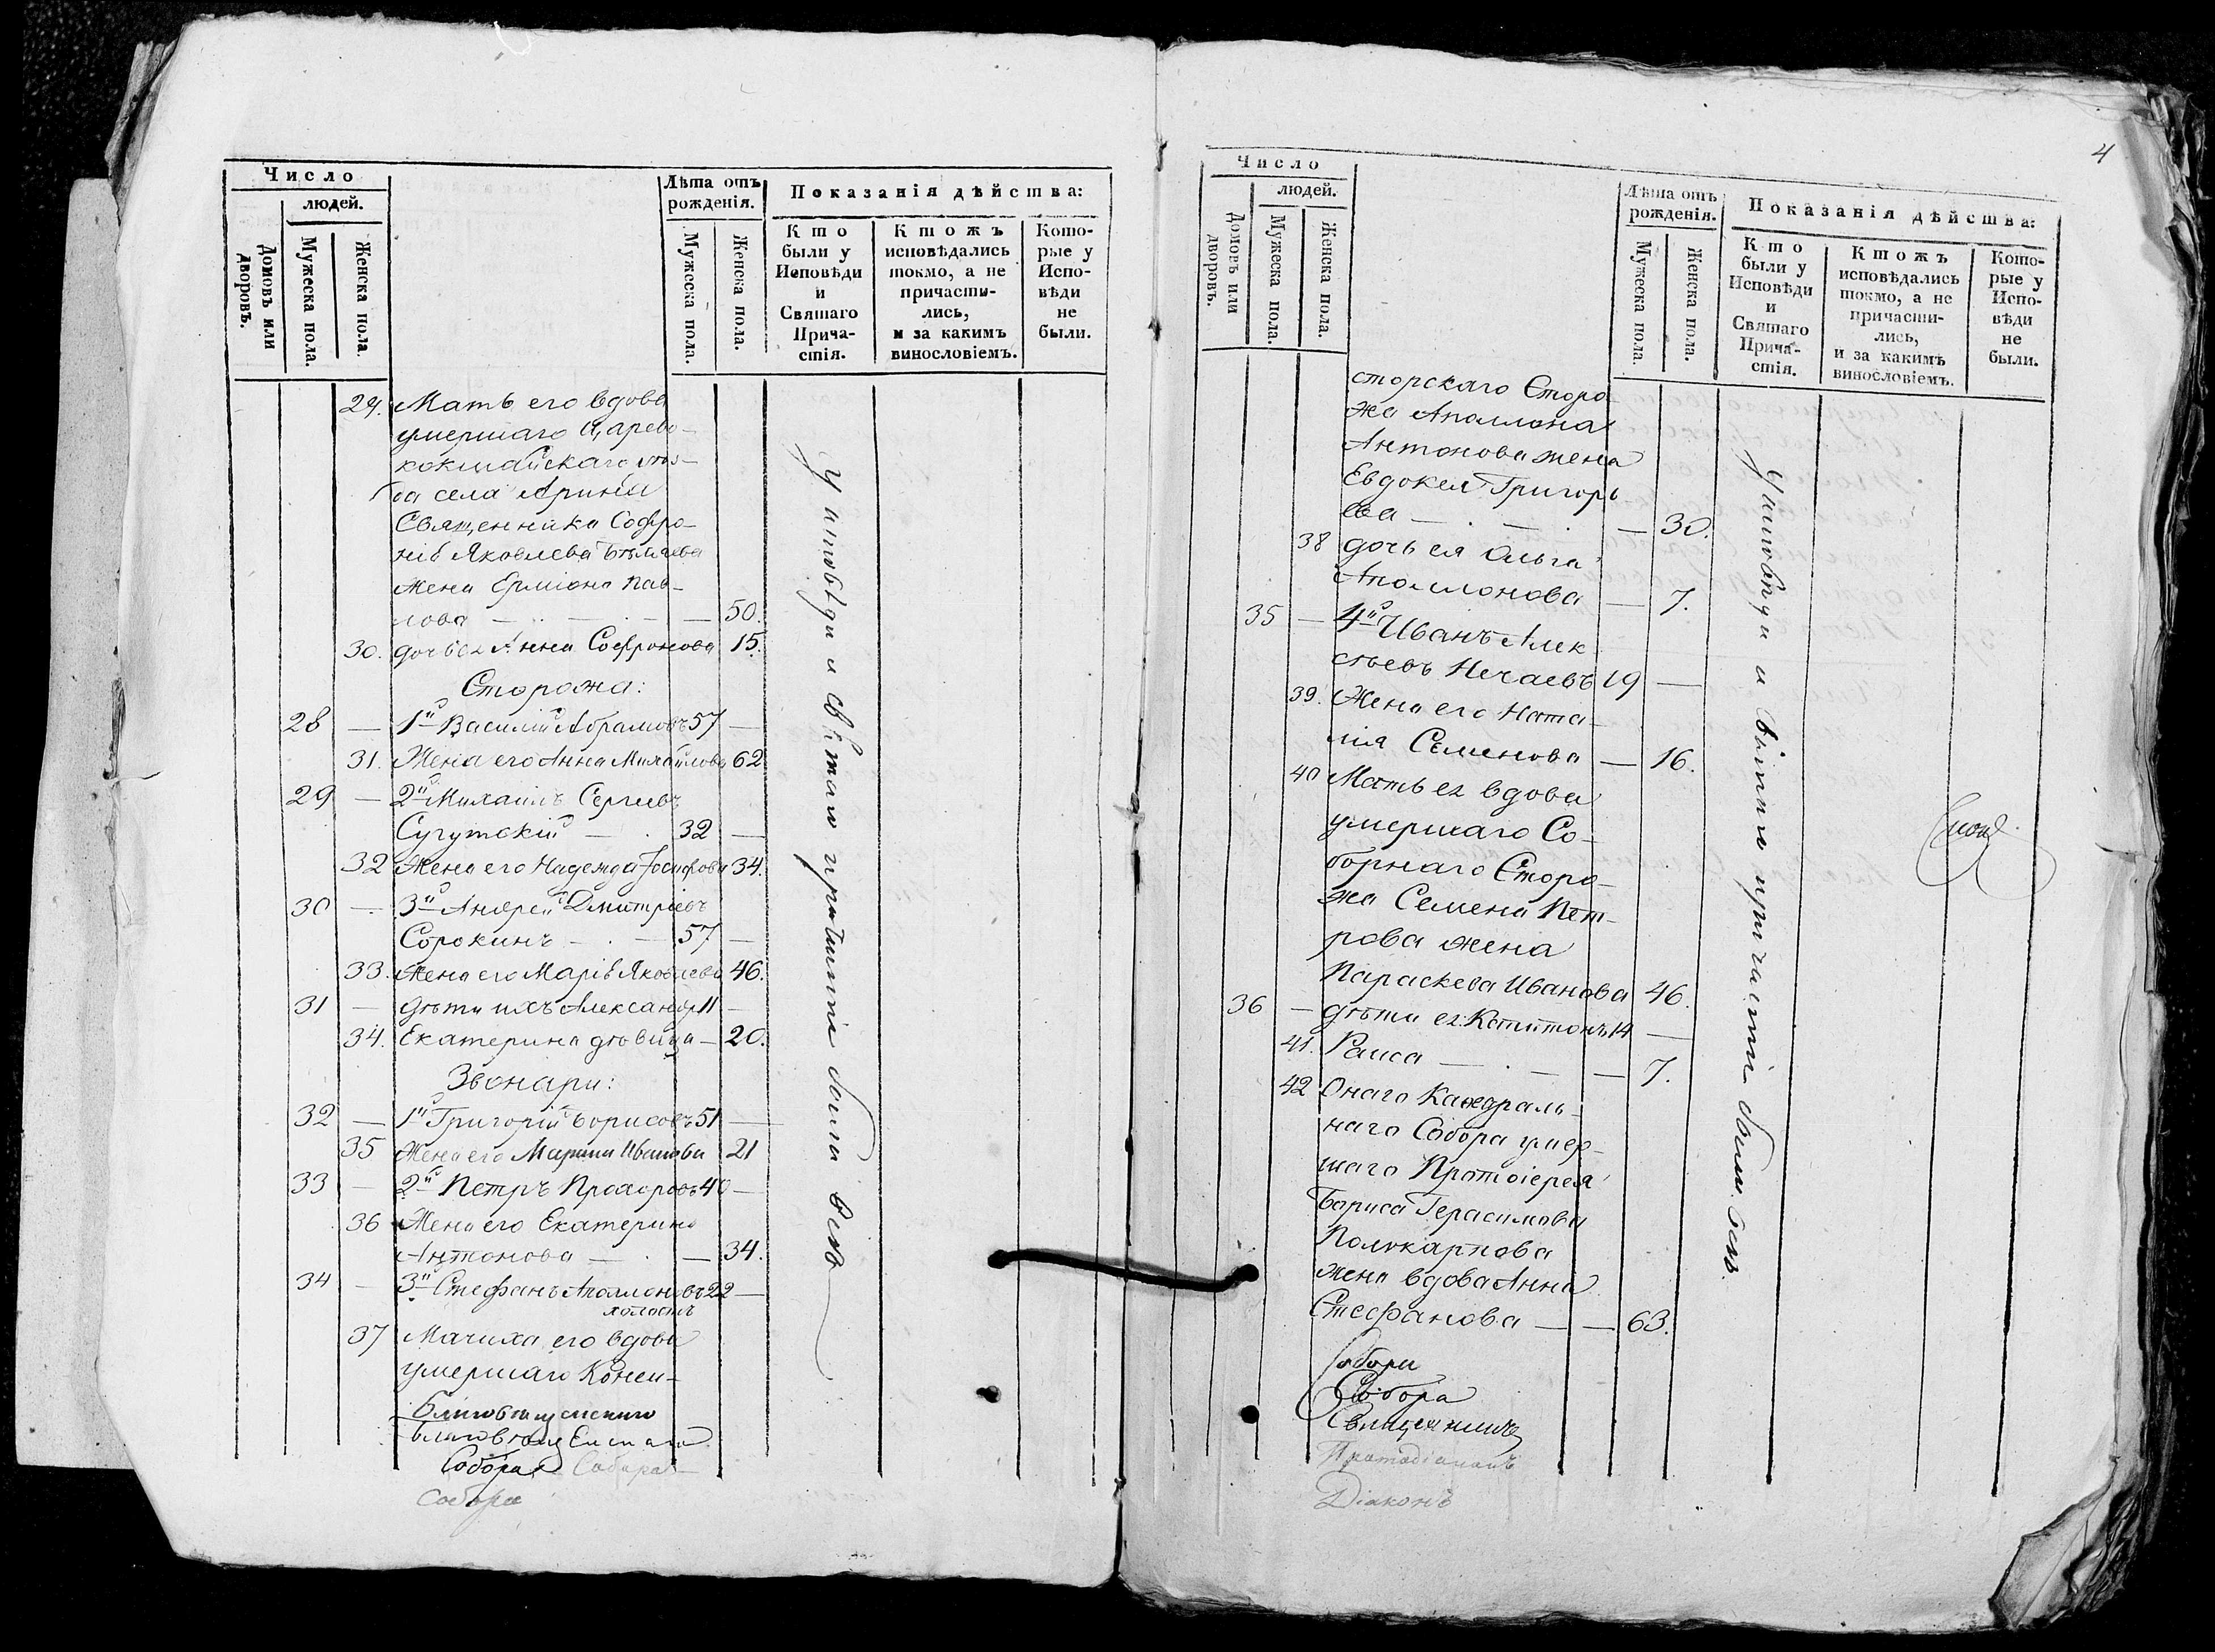 Число
людей.
Домовъ или дворовъ.
Мужеска пола.
Женска пола.
Лѣта отъ рожденія.
Мужеска пола.
Женска пола.
Показанія дѣйства:
Кто были у Исповѣди и Святаго Причастія.
Ктожъ исповѣдались токмо, а не причастились, и за какимъ винословіемъ.
Которые у Исповѣди не были.
29. Мать его вдова
умершаго Царево-
кокшайскаго уѣз-
да села Арина
Священника Софро-
нія Яковлева Бѣляева
жена Ерміона Пав-
лова — 50.
30. дочь ея Анна Софронова 15.
Сторожа:
28 — 1й Василий Абрамовъ 57 —
31. Жена его Анна Михайлова 62
29 — 2й Михаилъ Сергеевъ
Сугутскій — 32 —
32 Жена его Надежда Іосифова 34.
30 — 3й Андрей Дмитріевъ
Сорокинъ — 57 —
33. Жена его Марія Яковлева 46.
31 — дѣти ихъ Александръ 11 —
34. Екатерина дѣвица — 20.
Звонари:
32 — 1й Григорій Борисовъ 51 —
35 Жена его Марина Иванова 21
33 — 2й Петръ Прохоровъ 40 —
36 Жена его Екатерина
Антонова — 34.
34 — 3й Стефанъ Аполлоновъ 22 —
холостъ
37 Мачиха его вдова
умершаго Консис-
Благовѣщенскаго
Благовѣщенскаго
Собора Собора
Собора
У исповѣди и св҃таго причастія были всѣ
4
Число
людей.
Домовъ или дворовъ.
Мужеска пола.
Женска пола.
Лѣта отъ рожденія.
Мужеска пола.
Женска пола.
Показанія дѣйства:
Кто были у Исповѣди и Святаго Причастія.
Ктожъ исповѣдались токмо, а не причастились, и за какимъ винословіемъ.
Которые у Исповѣди не были.
сторскаго Сторо-
жа Аполлона
Антонова жена
Евдокея Григорь-
ева — — 30.
38 дочь ея Ольга
Аполлонова — 7.
35 — 4й Иванъ Алек
сѣевъ Нечаевъ 19 —
39. Жена его Ната-
лія Семенова — 16.
40 Мать ея вдова
умершаго Со-
борнаго Сторо-
жа Семена Пет-
рова жена
Параскева Иванова 46.
36 — дѣти ея: Капитонъ 14 —
41. Раиса — — 7.
42 Онаго Кафедраль-
наго Собора умер-
шаго Протоіерея
Бориса Герасимова
Поликарпова
жена вдова Анна
Стефанова — — 63.
Собора
Собора
Священникъ
Протодіаконъ
Діаконъ
У исповѣди и причастія были всѣ.